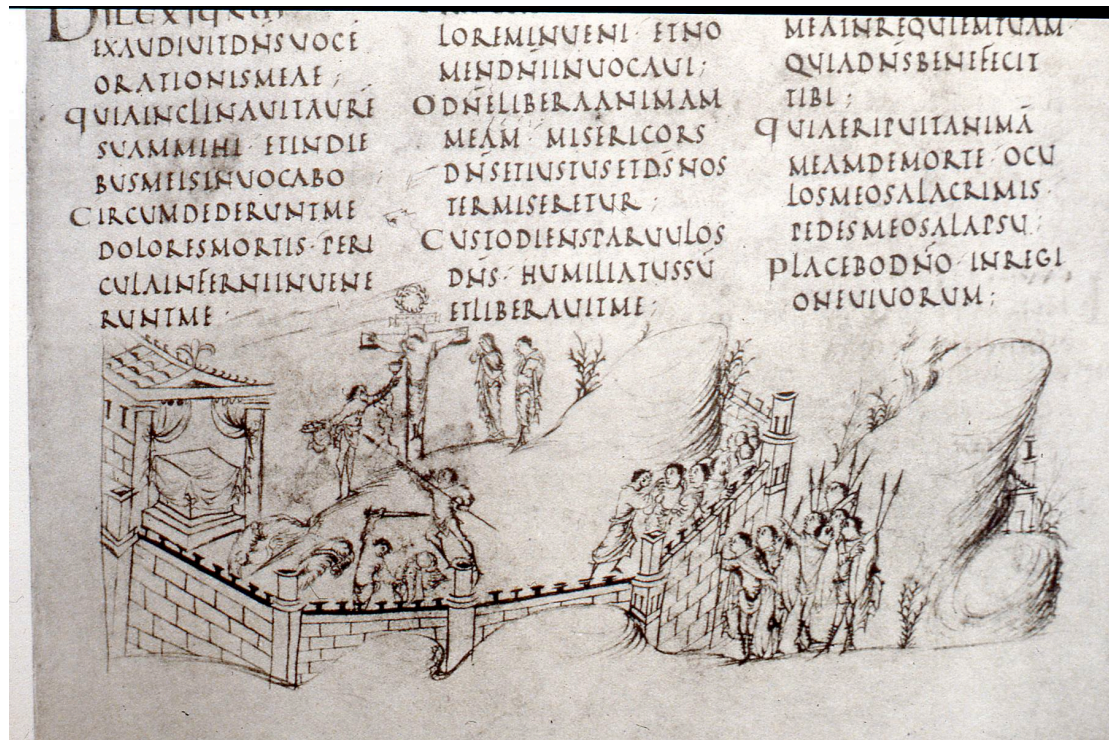 DILEXI
EXAUDIUITDN̄SUOCĒ
ORATIONISMEAE ;
QUIAINCLINAUITAURĒ
SUAMMIHI · ETINDIE
BUSMEISINUOCABO
CIRCUMDEDERUNTME
DOLORESMORTIS · PERI
CULAINFERNIINUENE
RUNTME ·
LOREMINUENI · ETNO
MENDN̄IINUOCAUI ;
ODN̄ELIBERAANIMAM
MEAM · MISERICORS
DN̄SETIUSTUSETDS̄NOS
TERMISERETUR ;
CUSTODIENSPARUULOS
DN̄S · HUMILIATUSSŪ
ETLIBERAUITME ;
MEAINREQUIEMTUAM ·
QUIADN̄SBENEFECIT
TIBI ;
QUIAERIPUITANIMĀ
MEAMDEMORTE · OCU
LOSMEOSALACRIMIS ·
PEDESMEOSALAPSU ;
PLACEBODN̄O · INREGI
ONEUIUORUM ;